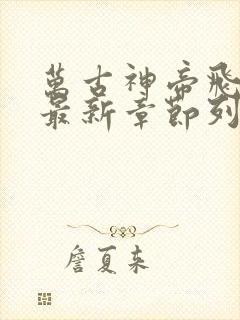 萬古神帝飛
最新章節列
詹夏来